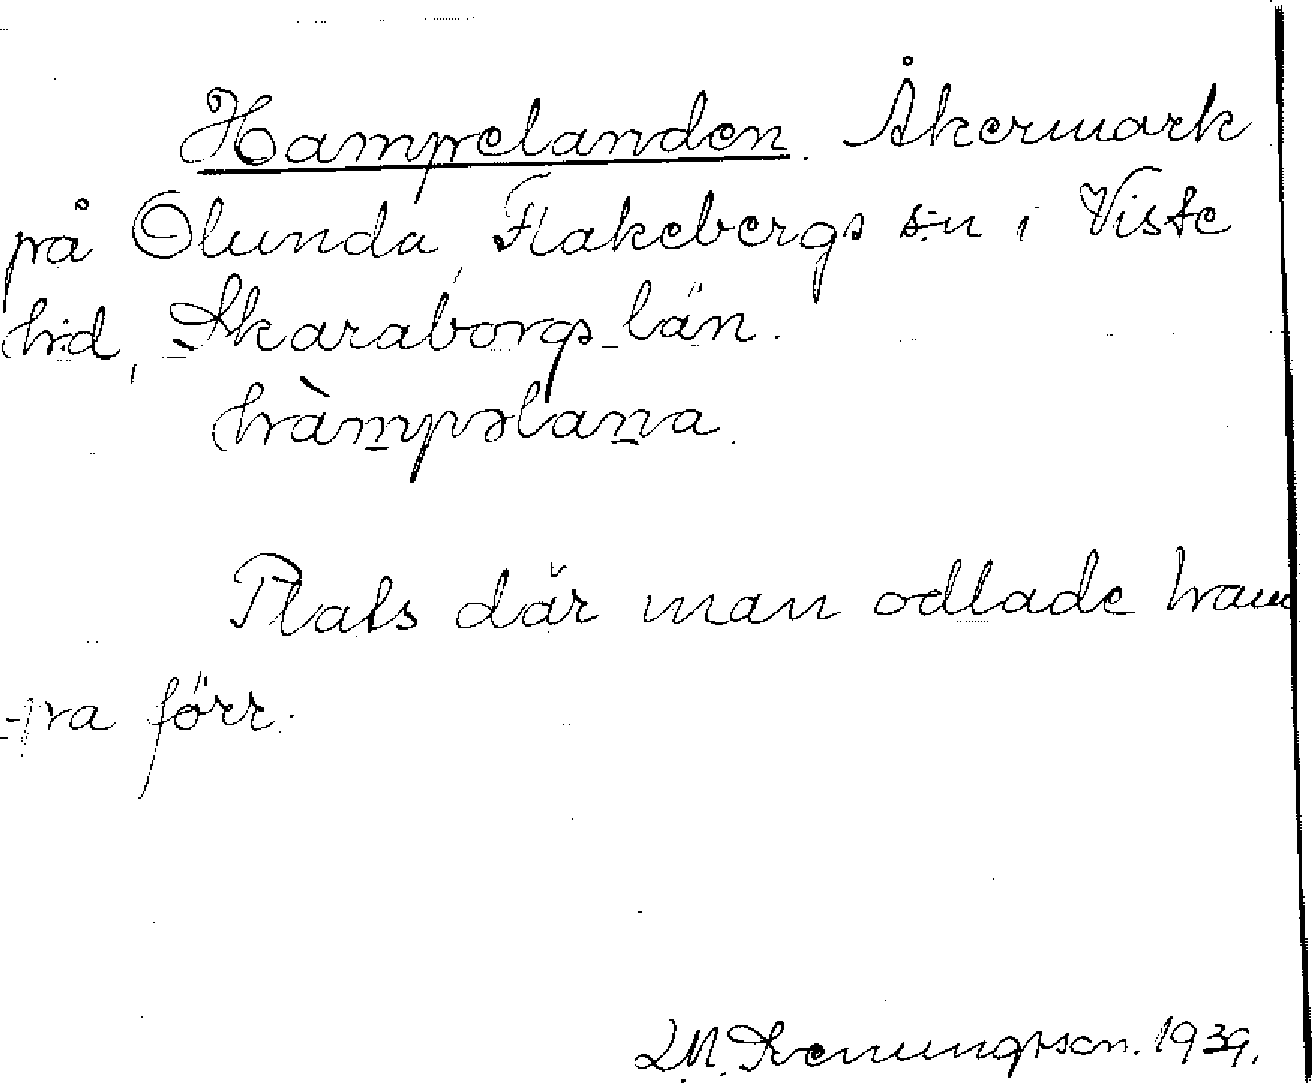 Hampelanden. Åkermark
på Olunda, Flakebergs s:n i Viste
hd, Skaraborgs län.
hàmpəlana.
Plats där man odlade ham
-pa förr.
1939.